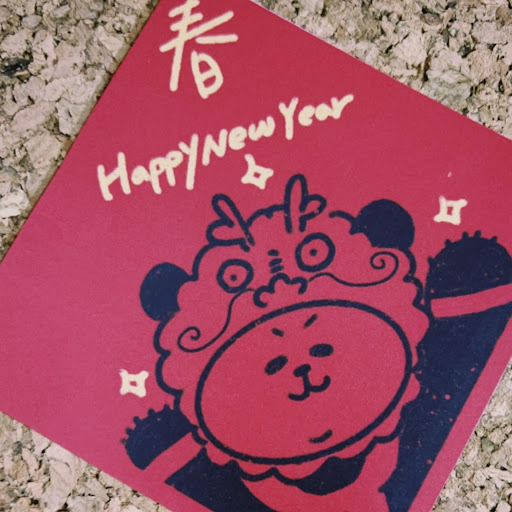 春
Happy New Year